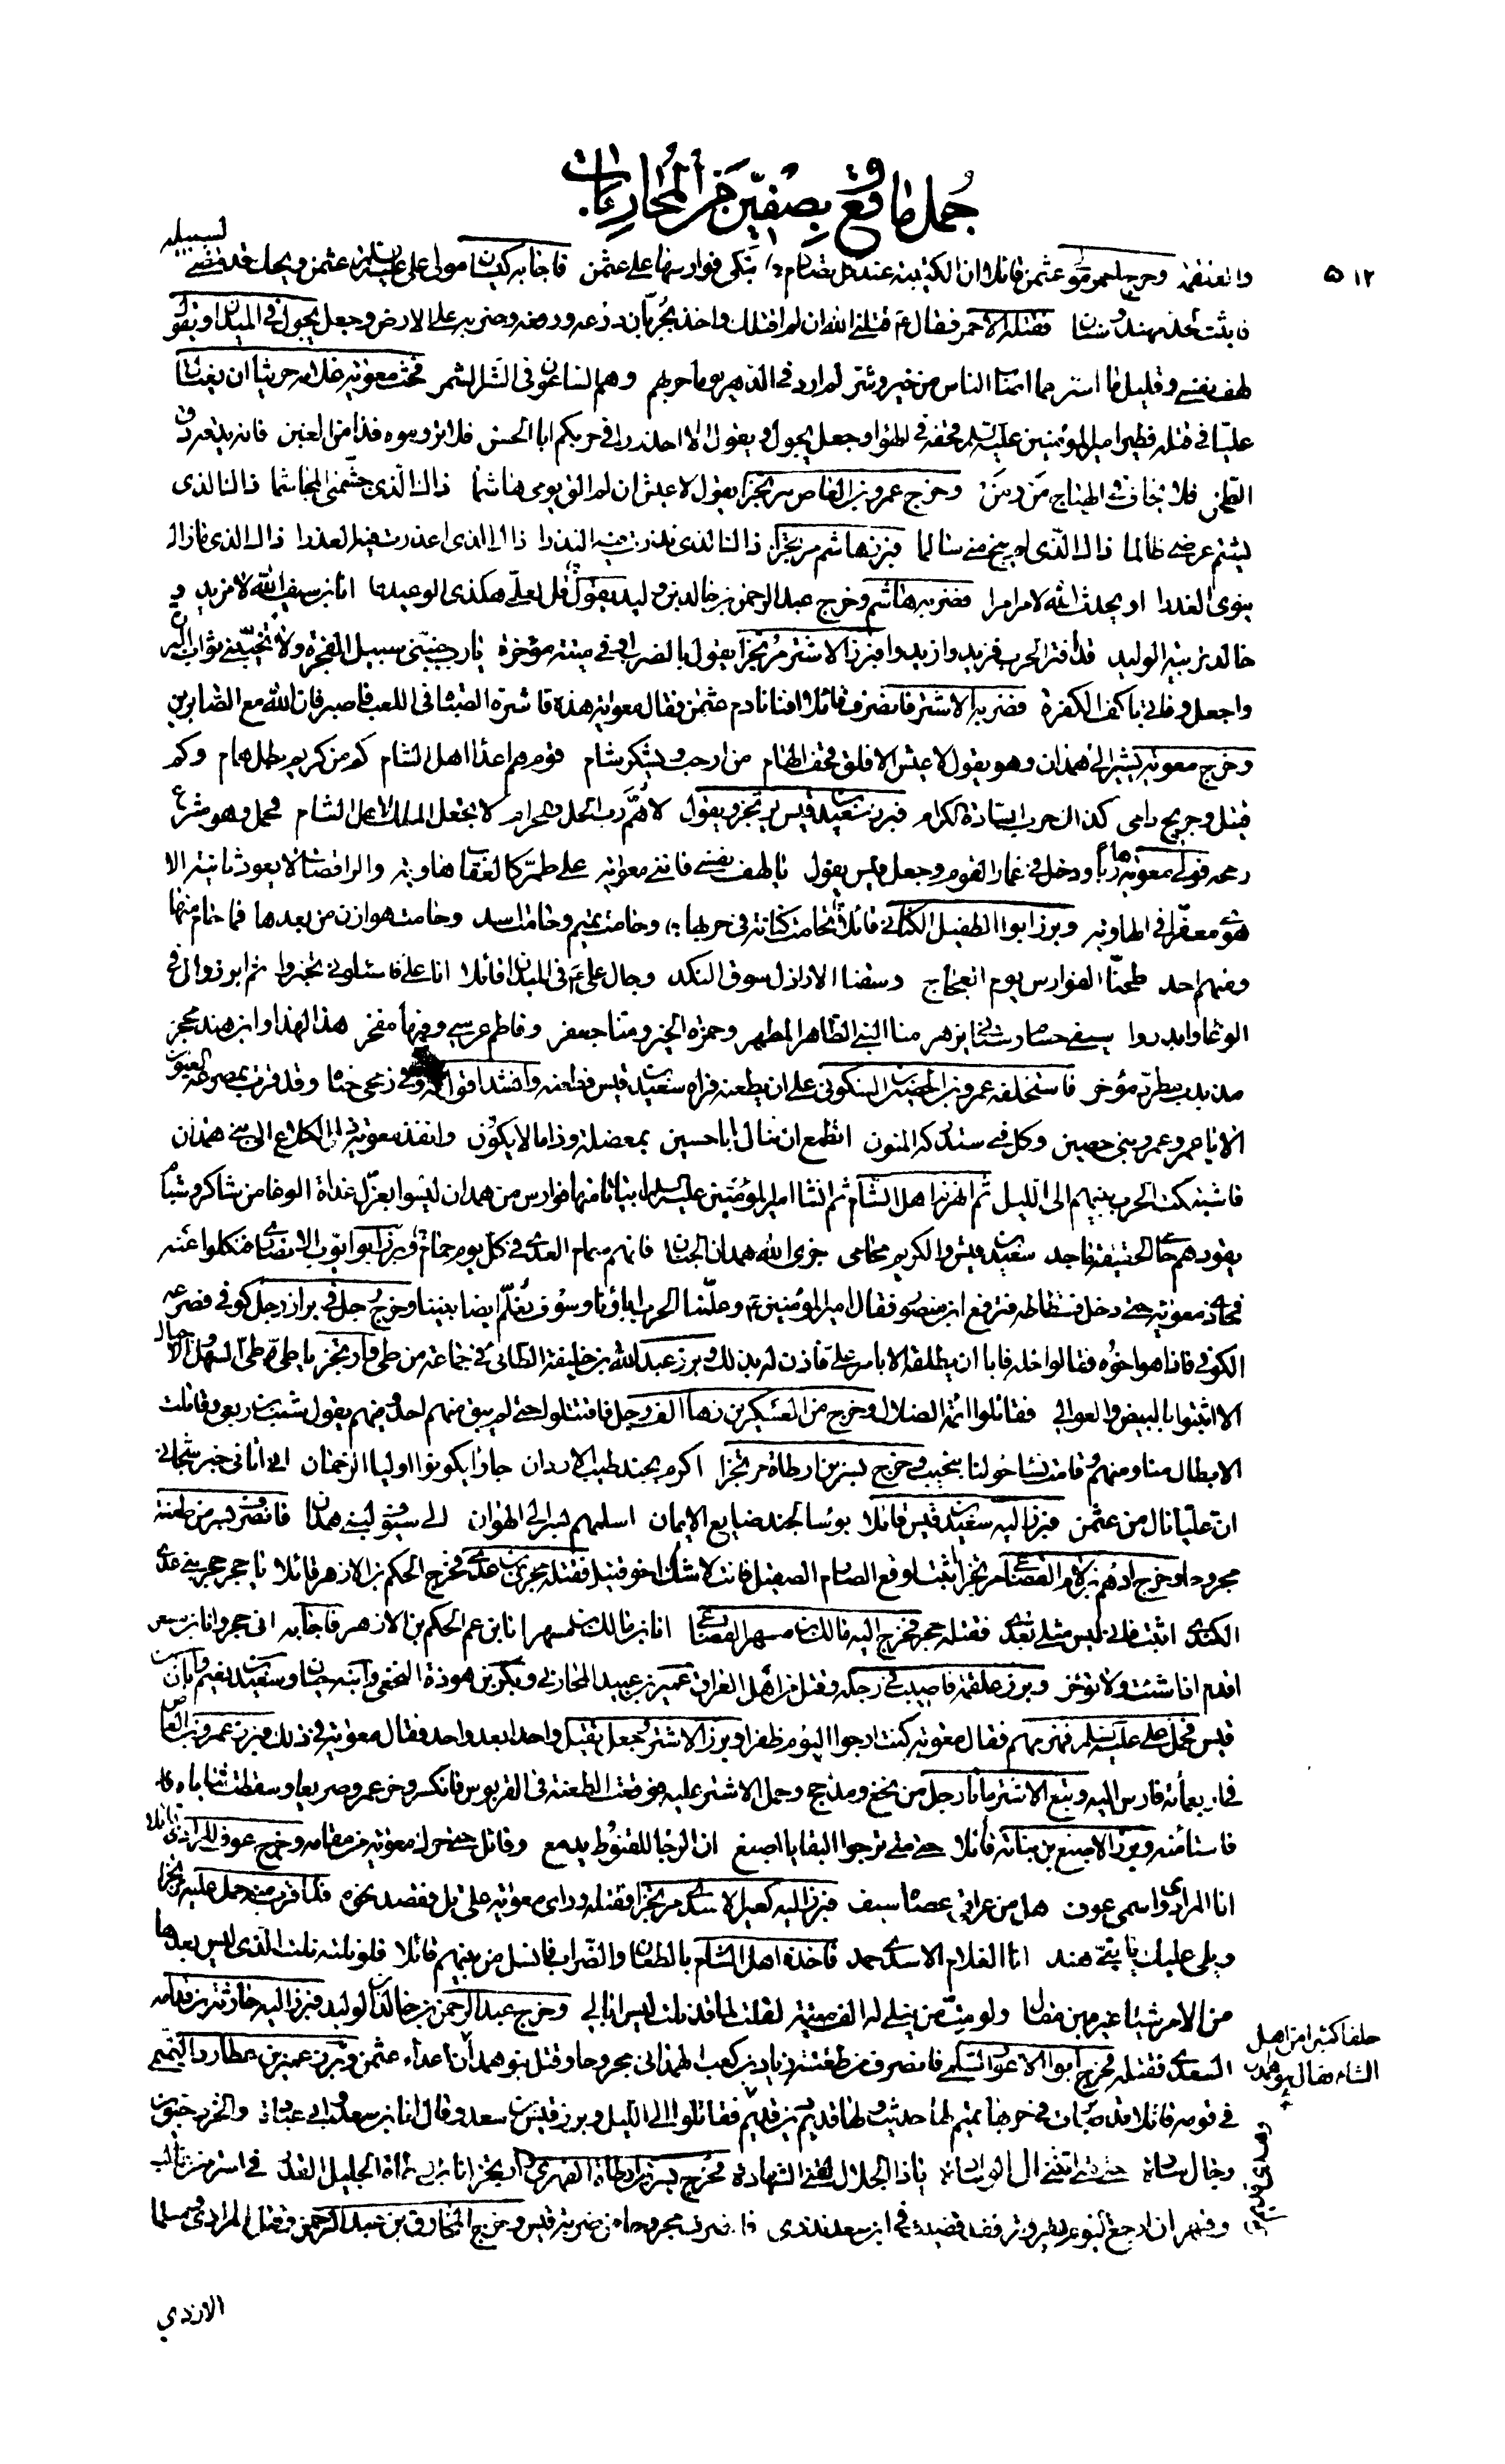 جُمل ما وقع بِصِفّين من المُحاربات
٥١٢
وخرج احمر مولى عثمن قائلا ان الكتيبة عند كل تبكى فوارسها على عثمن فاجابه كيسان مولى على عثمن ويحك قد مضى لسبيله
فاثبت لحد مهند وسنان فقتله الاحمر فقال ع قتلنى الله ان لم اقتلك واخذ بجربان درعه ورفعه وضرب به على الارض وجعل يجول فى الميدان ويقول
لهف نفسى وقليل ما اسر ما اصاب الناس من خير وشر لم ارد فى الدهر يوما حربهم وهم الساعون فى الشر الشمر فحث معوية غلامه حريثا ان يغتال
عليّا فى قتله فطير امير المؤمنين عليه السلم قحفه فى الهوا وجعل يجول ويقول الا احذروا فى حربكم ابا الحسن فلا تروموه فذا من الغبن فانه يدقكم دق
الطحن فلا يخاف فى الهياج من ومن وخرج عمرو بن العاص مرتجزا يقول لا عيش ان لم الق يومى هاشما ذاك الذى جشمنى المجاشما ذاك الذى
يشتم عرضى ظالما ذاك الذى ان ينج منى سالما فبرز هاشم مرتجزا ذاك الذى نذرت فيه النذرا ذاك الذى اعذرت فيه العذرا ذاك الذى ما زال
ينوى الغدرا او يحدث الله لامر امرا فضربه هاشم وخرج عبد الرحمن بن خالد بن وليد يقول قل لعلى هكذى الوعيد انا ابن سيف الله لا مزيد و
خالد يزينه الوليد قد افتر الحرب فزيدوا زيدوا فبرز الاشتر مرتجزا يقول بالضرب اوفى ميتة مؤخرة يا رب جنبنى سبيل الفجرة ولا تخيبنى ثواب البررة
واجعل وفاتى باكف الكفرة فضربه الاشتر فانصرف قائلا افنانا دم عثمن فقال معوية هذه قاشرة الصبيان فى اللعب فاصبر فان الله مع الصابرين
وخرج معوية يشير الى همدان وهو يقول لا عيش الا فلق قحف الهام من ارحب ويشكر شبام قوم هم اعداء اهل الشام كم من كريم بطل همام وكم
قتيل وجريح دامى كذاك حرب السادة الكرام فبرز سعيد بن قيس يرتجز ويقول لاهم رب الحل والحرام لا تجعل الملك لاهل الشام فحمل وهو مشرع
رمحه فولى معوية هاربا ودخل فى غمار القوم وجعل قيس يقول يا لهف نفسى فاتنى معوية على طمر كالعقاب هاوية والراقصات لا يعود ثانية الا
هوى معفرا فى الهاوية وبرز ابوا الطفيل الكنانى قائلا تحامت كنانة فى حربها وحامت تميم وحامت اسد وحامت هوازن من بعدها فما حام منها
ومنهم احد طحنا الفوارس يوم العجاج وسقنا الاراذل سوق النكد وجال على ع فى الميدان قائلا انا على فاسئلونى تخبروا ثم ابرزوا لى فى
الوغا وابدروا سيفى حسام وسنانى يزهر منا النبى الطاهر المطهر وحمزة الخير ومنا جعفر وفاطم عرسى وفيها مفخر هذا لهذا وابن هند محجر
مذبذب مطرد مؤخر فاستخلفه عمرو بن الحصين السكونى على ان يطعنه فراه سعيد بن قيس فطعنه وانشد اقول له وفى رمحى حشاه وقد قرت بمصرعه العيون
الا يا عمرو عمرو بنى حصين وكل فتى ستدركه المنون اتطمع ان تنال ابا حسين بمعضلة وذا ما لا يكون وانفذ معوية ذا الكلاع الى بنى همدان
فاشتبكت الحرب بينهم الى الليل ثم انهزم اهل الشام ثم انشا امير المؤمنين عليه السلم ابياتا منها فوارس من همدان ليسوا بعزل غداة الوغا من شاكر وشبام
يقودهم حامى الحقيقة ماجد سعيد بن قيس والكريم محامى جزى الله همدان الجنان فانهم سهام العدى فى كل يوم حمام وبرز ابو ايوب الانصارى فنكلوا عنه
فحاذى معوية حتى دخل فسطاطه فقال امير المؤمنين ع وعلمنا الحرب اباؤنا وسوف نعلم ايضا بنينا وخرج رجل فى براز رجل كوفى فصرعه
الكوفى فاذا هو اخوه فقالوا خله فابا ان يطلقه الا بامر على فاذن له بذلك وبرز عبد الله بن خليفة الطائى فى جماعة من طى وارتجز يا طى طى السهل والاجبال
الا اثبتوا بالبيض والعوالى فقاتلوا ائمة الضلال وخرج من العسكرين زهاء الف رجل فاقتتلوا حتى لم يبق منهم احد وفيهم يقول شبث بن ربعى وقاتلت
الابطال منا ومنهم وقامت نساء حولنا بنحيب وخرج بسر بن ارطاة مرتجزا اكرم بجند طيب الاردان جاؤا يكونوا اولياء الرحمن انى اتانى خبر شجانى
ان عليا نال من عثمن فبرز اليه سعيد بن قيس قائلا بؤسا لجند ضايع الايمان اسلمهم بسر الى الهوان الى سيوف لبنى همدان فانصرف بسر من طعنته
مجروحا وخرج ادهم بن لام القضاعى مرتجزا اثبت لوقع الصارم الصقيل فانت لا شك اخو قتيل فقتله حجر بن عدى فخرج الحكم بن الازهر قائلا يا حجر حجر بنى عدى
الكندى اثبت فانى ليس مثلى بعدى فقتله حجر فخرج اليه مالك بن مسهر القضاعى انا ابن مالك بن مسهر انا ابن عم الحكم بن الازهر فاجابه انى حجر وانا ابن مسعر
اقدم اذا شئت ولا تؤخر وبرز علقمة فاصيب فى رجله وقتل من اهل العراق عمير بن عبيد المحاربى وبكر بن هوذة النخعى وابنه حيان وسعيد بن نعيم وابان بن
قيس فحمل على عليه السلم فهزمهم فقال معوية كنت ارجوا اليوم ظفرا وبرز الاشتر وجعل يقتل واحدا بعد واحد فقال معوية فى ذلك فبرز عمرو بن العاص
فى اربعمائة فارس اليه وتبع الاشتر مائتا رجل من نخع ومذحج وحمل الاشتر عليه فوقعت الطعنة فى القربوس فانكسر وخر عمرو صريعا وسقطت ثناياه
فاستأمنه وبرز الاصبغ بن نباتة قائلا حتى متى ترجوا البقا يا اصبغ ان الرجا للقنوط يدمغ وقاتل حتى حرك معوية من مقامه وخرج عوف المرادى قائلا
انا المرادى واسمى عوف هل من عراقى عصاه سيف فبرز اليه كعبر الاسدى مرتجزا فقتله وراى معوية على تل فقصد نحوه فلما قرب منه حمل عليه مرتجزا
ويلى عليك يا بنى هند انا الغلام الاسدى حمد فاخذه اهل الشام بالطعان والضراب فانسل من بينهم قائلا فلو نلته نلت الذى ليس بعدها
من الامر شيئا غير مين مقال ولو مت من نيلى له الف ميتة لقلت لما قد نلت ليس ابالى وخرج عبد الرحمن بن خالد بن الوليد فبرز اليه حارثة بن قدامه
السعدى فقتله فخرج ابوا الاعور السلمى فانصرف من طعنته زياد بن كعب الهمدانى مجروحا وقتل بنو همدان اعداء عثمن وبرز عمير بن عطارد التميمى
خلقا كثيرا من اهل
الشام فقال بنو همدان
فى قومه قائلا قد صابرت فى حربها تميم لها حديث ولها قديم فقاتلوا الى الليل وبرز قيس بن سعد وقال انا ابن سعد وابى عبادة والخزرجيون
رجال سادة حتى متى تثنى لى الوسادة يا ذا الجلال لقنى الشهادة فخرج بسر بن ارطاة الفهرى مرتجزا انا ابن ارطاة الجليل القدر فى اسرة من غالب
وفهر ان ارجع اليوم بغير وتر فقد قضيت فى ابن سعد نذرى فانصرف مجروحا من ضربة قيس وخرج المخارق بن عبد الرحمن وقتل المرادى ومسلما
الازدي